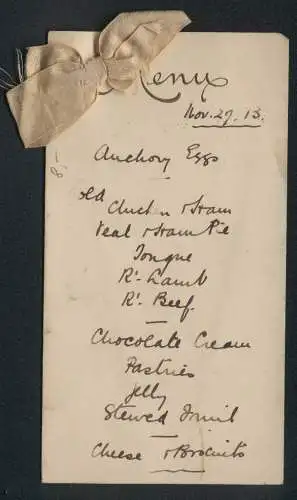 Menu
Nov. 29. 13.
Anchovy Eggs
Cold
Chicken & Ham
Veal & Ham Pie
Tongue
Rt. Lamb
Rt. Beef
Chocolate Cream
Pastries
Jelly
Stewed Fruit
Cheese & Biscuits